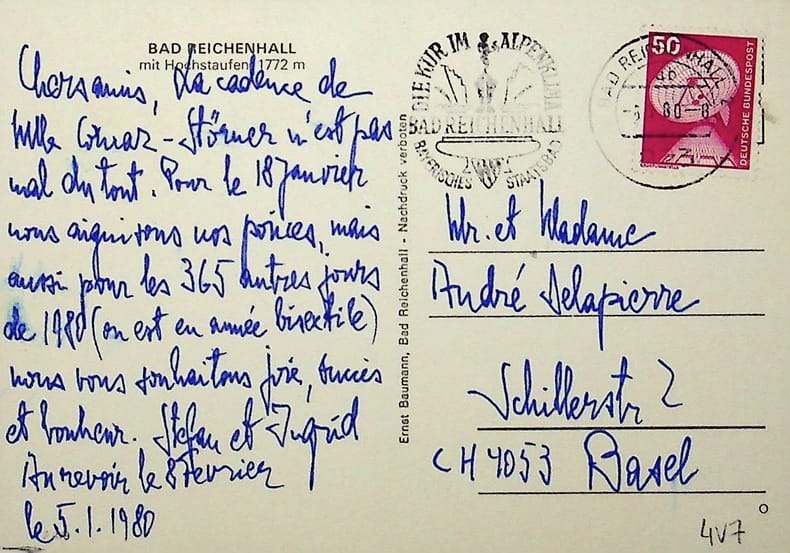 BAD REICHENHALL
mit Hochstaufen, 1772 m
Chers amis, La cadence de
Mlle Cornaz-Störner n'est pas
mal du tout. Pour le 18 Janvier
nous aiguisons nos pouces, mais
aussi pour les 365 autres jours
de 1980 (on est en année bisextile)
nous vous souhaitons joie, succès
et bonheur. Stefan et Ingrid
Au revoir le 8 Février
le 5.1.1980
Ernst Baumann, Bad Reichenhall - Nachdruck verboten
DIE KUR IM ALPENKLIMA
BAD REICHENHALL
BAYERISCHES STAATSBAD
BAD REICHENHALL
80-8
50
DEUTSCHE BUNDESPOST
Mr. et Madame
André Delapierre
Schillerstr 2
CH 4053 Basel
4V7